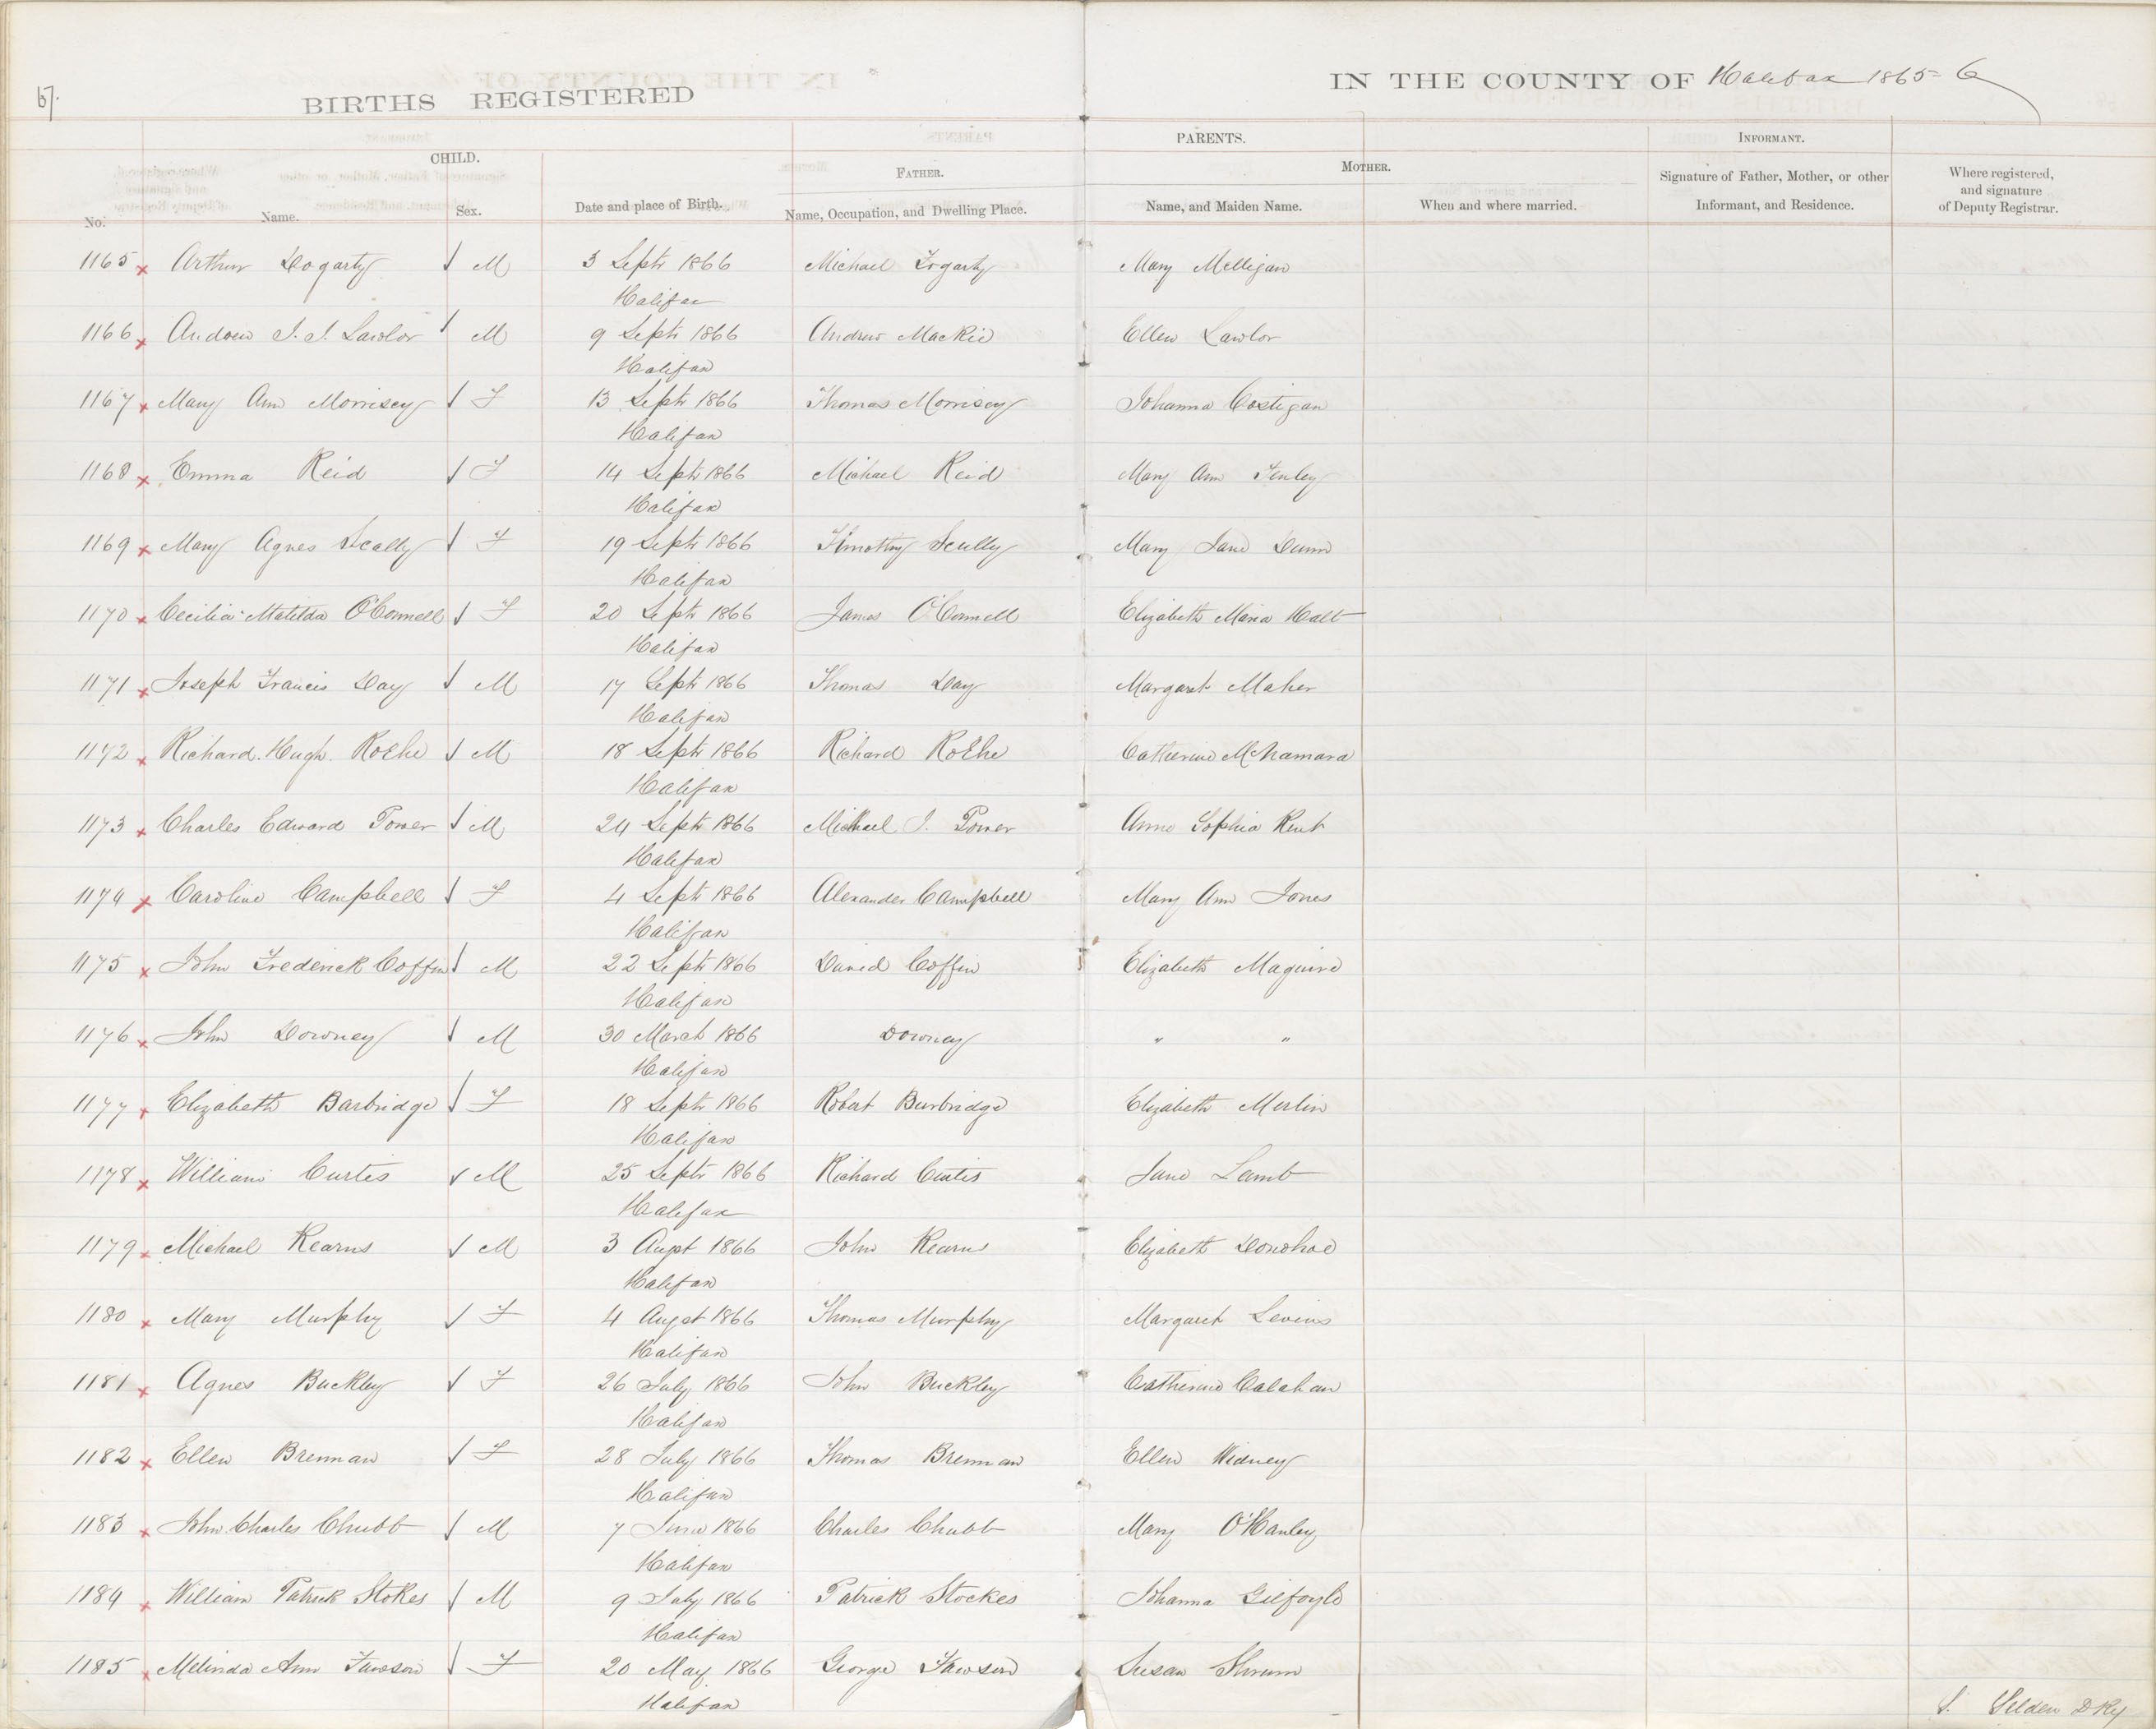 67.
BIRTHS REGISTERED
IN THE COUNTY OF Halifax 1865-6
CHILD.
PARENTS.
INFORMANT.
FATHER.
MOTHER.
No.
Name.
Sex.
Date and place of Birth.
Name, Occupation, and Dwelling Place.
Name, and Maiden Name.
When and where married.
Signature of Father, Mother, or other
Informant, and Residence.
Where registered,
and signature
of Deputy Registrar.
1165 x Arthur Fogarty M 3 Septr 1866 Michael Fogarty Mary Melligan
Halifax
1166 x Andrew J. J. Lawlor M 9 Septr 1866 Andrew Mackie Ellen Lawlor
Halifax
1167 x Mary Ann Morrisey F 13 Septr 1866 Thomas Morrisey Johanna Costigan
Halifax
1168 x Emma Reid F 14 Septr 1866 Michael Reid Mary Ann Finley
Halifax
1169 x Mary Agnes Scully F 19 Septr 1866 Timothy Scully Mary Jane Dunn
Halifax
1170 x Cecilia Matilda O'Connell F 20 Septr 1866 James O'Connell Elizabeth Maria Halt
Halifax
1171 x Joseph Francis Day M 17 Septr 1866 Thomas Day Margaret Maher
Halifax
1172 x Richard Hugh Roche M 18 Septr 1866 Richard Roche Catherine McNamara
Halifax
1173 x Charles Edward Power M 24 Septr 1866 Michael J. Power Anne Sophia Kent
Halifax
1174 x Caroline Campbell F 4 Septr 1866 Alexander Campbell Mary Ann Jones
Halifax
1175 x John Frederick Coffin M 22 Septr 1866 David Coffin Elizabeth Maguire
Halifax
1176 x John Downey M 30 March 1866 Downey " "
Halifax
1177 x Elizabeth Barbridge F 18 Septr 1866 Robert Burbridge Elizabeth Merlin
Halifax
1178 x William Curtis M 25 Septr 1866 Richard Curtis Jane Lamb
Halifax
1179 x Michael Kearns M 3 Augst 1866 John Kearns Elizabeth Donohoe
Halifax
1180 x Mary Murphy F 4 Augst 1866 Thomas Murphy Margaret Levins
Halifax
1181 x Agnes Buckley F 26 July 1866 John Buckley Catherine Calahan
Halifax
1182 x Ellen Brennan F 28 July 1866 Thomas Brennan Ellen Widney
Halifax
1183 x John Charles Chubb M 7 June 1866 Charles Chubb Mary O'Hanley
Halifax
1184 x William Patrick Stokes M 9 July 1866 Patrick Stockes Johanna Gilfoyle
Halifax
1185 x Melinda Ann Fawson F 20 May 1866 George Fawson Susan Shrum
Halifax
S. Selden D Rg